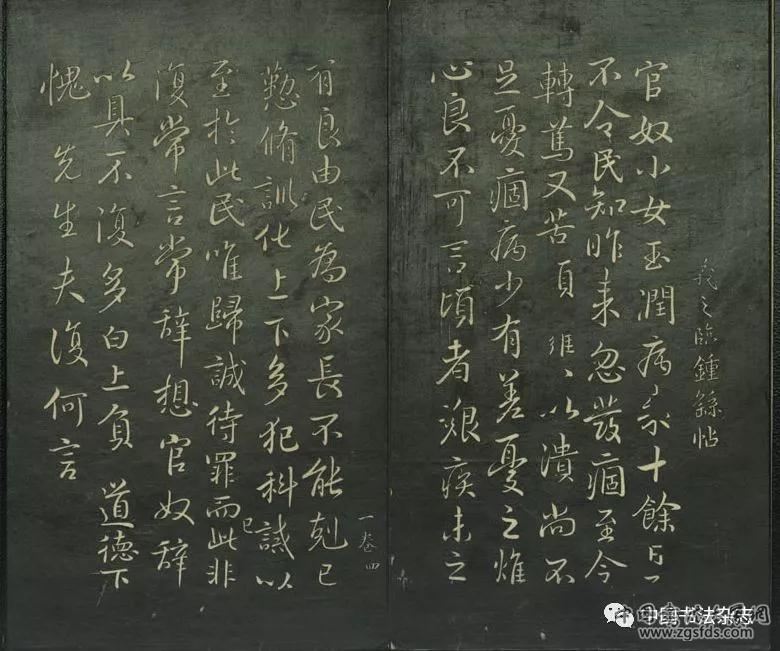 羲之臨鍾繇帖
官奴小女玉潤病來十餘日一
不令民知昨來忽發痼至今
轉篤又苦頭以潰尚不
足憂痼病少有差憂之燋
心良不可言頃者艱疾未之
一卷四
有良由民為家長不能剋己
懃脩訓化上下多犯科誡以
已
至於此民唯歸誠待罪而此非
復常言常辭想官奴辭
以具不復多白上負 道德下
愧 先生夫復何言
中国书法杂志
www.zgsfds.com